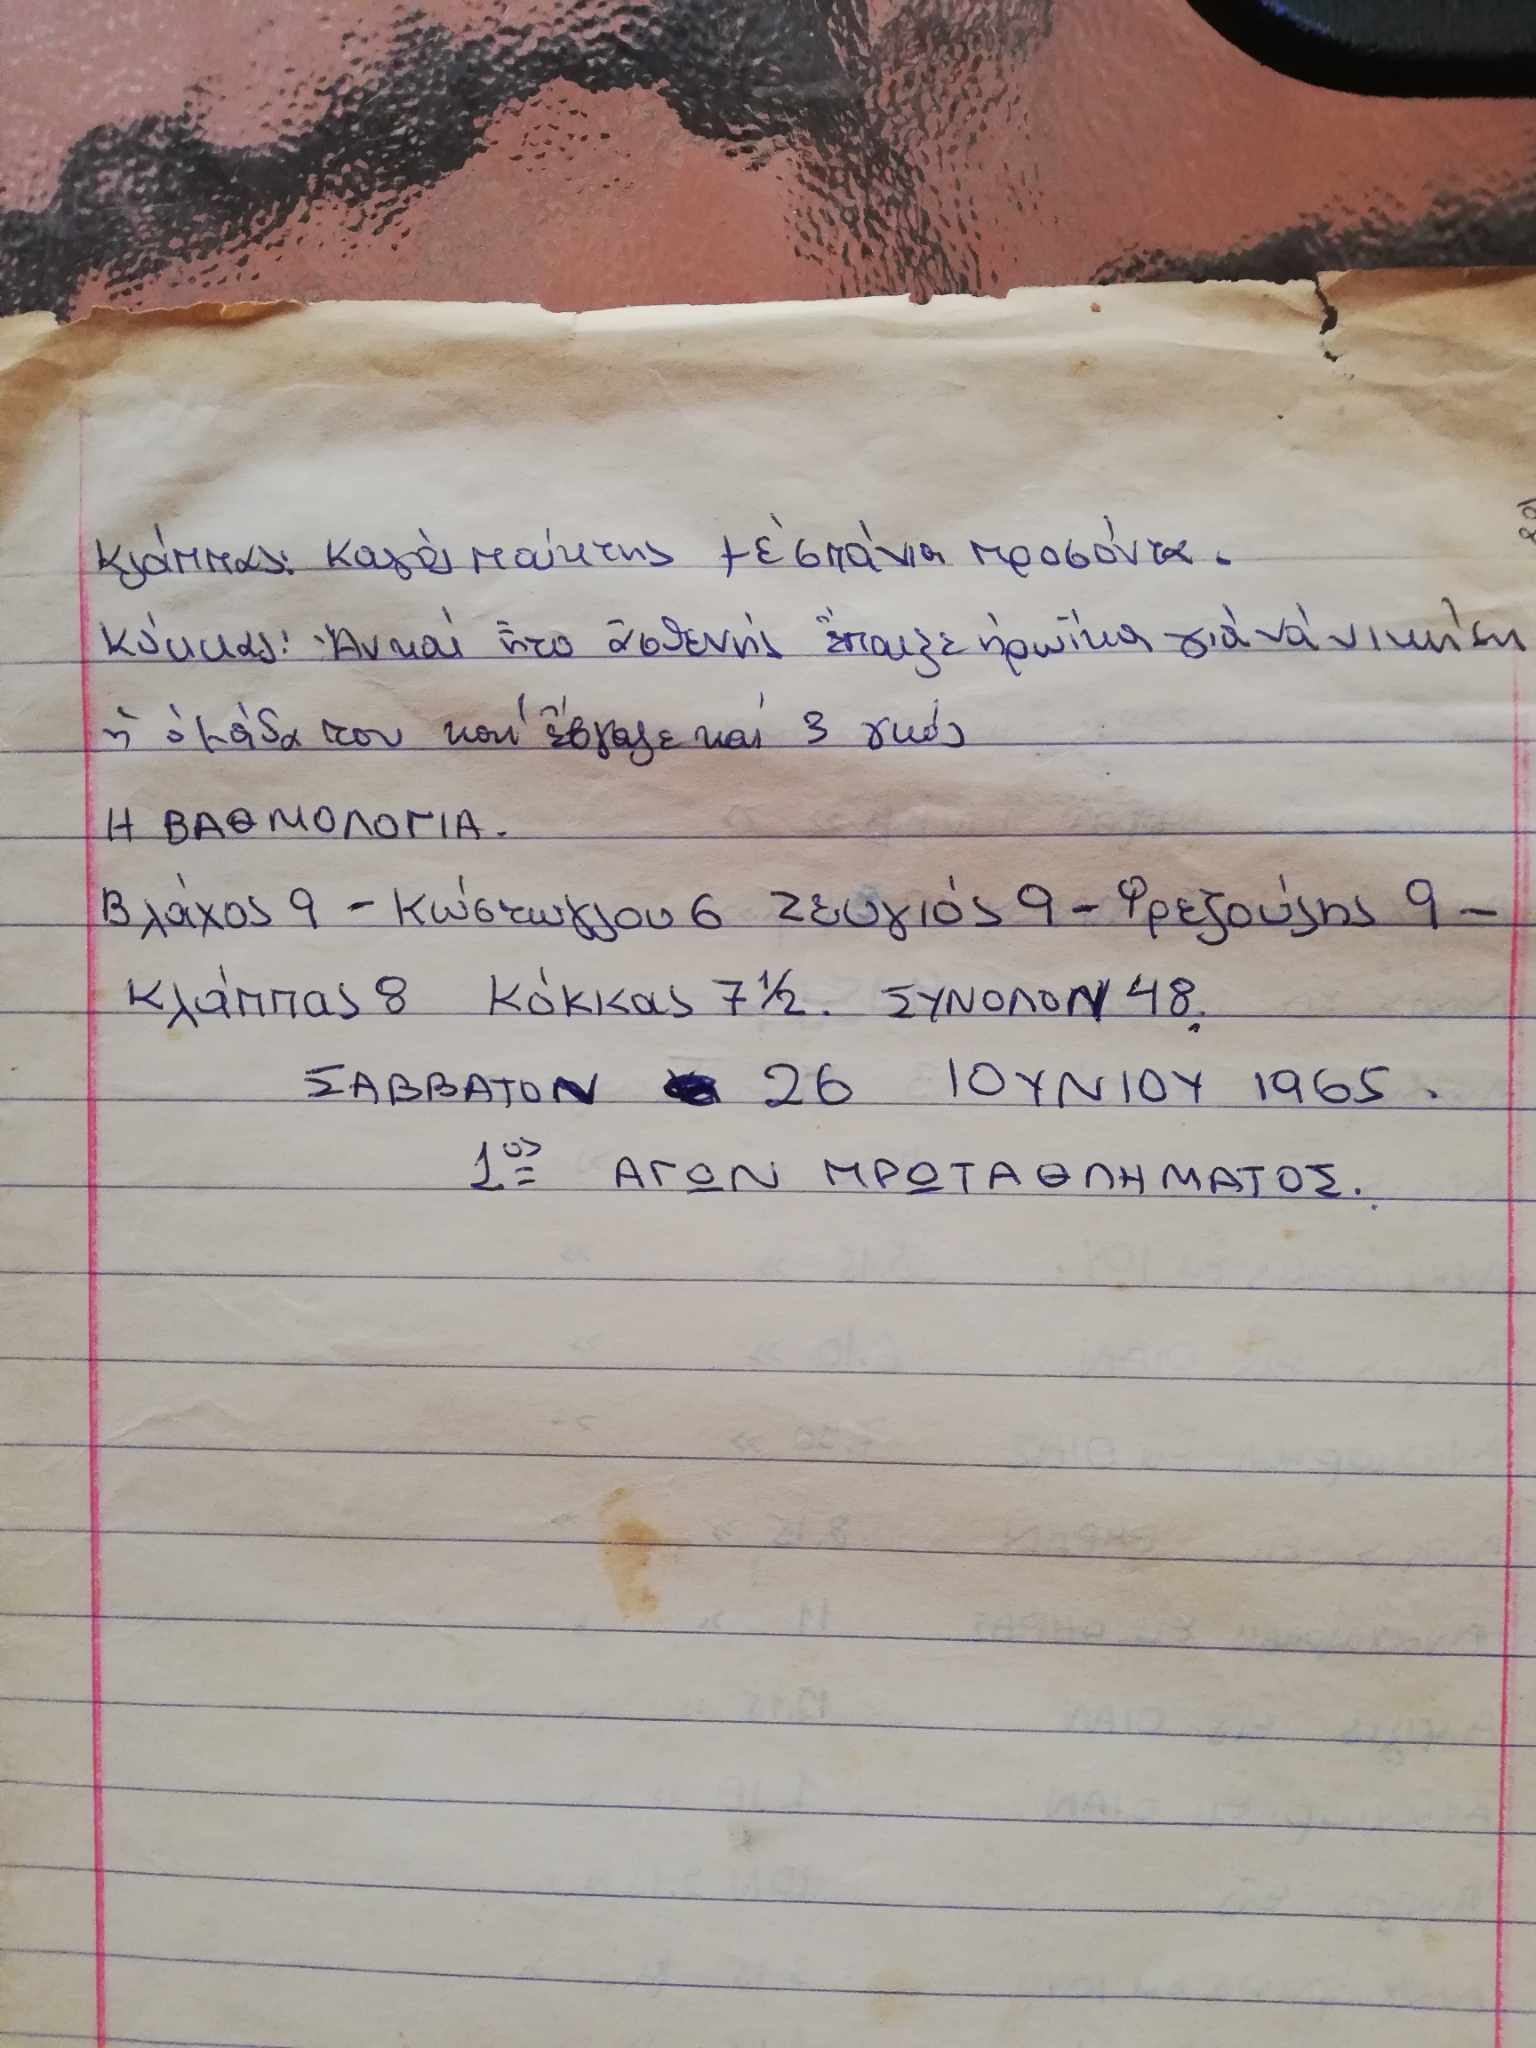 Κλάππας: Καλός παίκτης μέ σπάνια προσόντα.
Κόκκας: Ἄν καί ἦτο ἀσθενής ἔπαιξε ἡρωϊκα γιά νά νικήση
ἡ ὁμάδα του καί ἔβγαλε καί 3 γκόλ
Η ΒΑΘΜΟΛΟΓΙΑ.
Βλάχος 9 - Κώστωγλου 6 Ζευγιός 9 - Φρεζούλης 9 -
Κλάππας 8 Κόκκας 7 1/2. ΣΥΝΟΛΟΝ 48.
ΣΑΒΒΑΤΟΝ 26 ΙΟΥΝΙΟΥ 1965.
1ος ΑΓΩΝ ΠΡΩΤΑΘΛΗΜΑΤΟΣ.